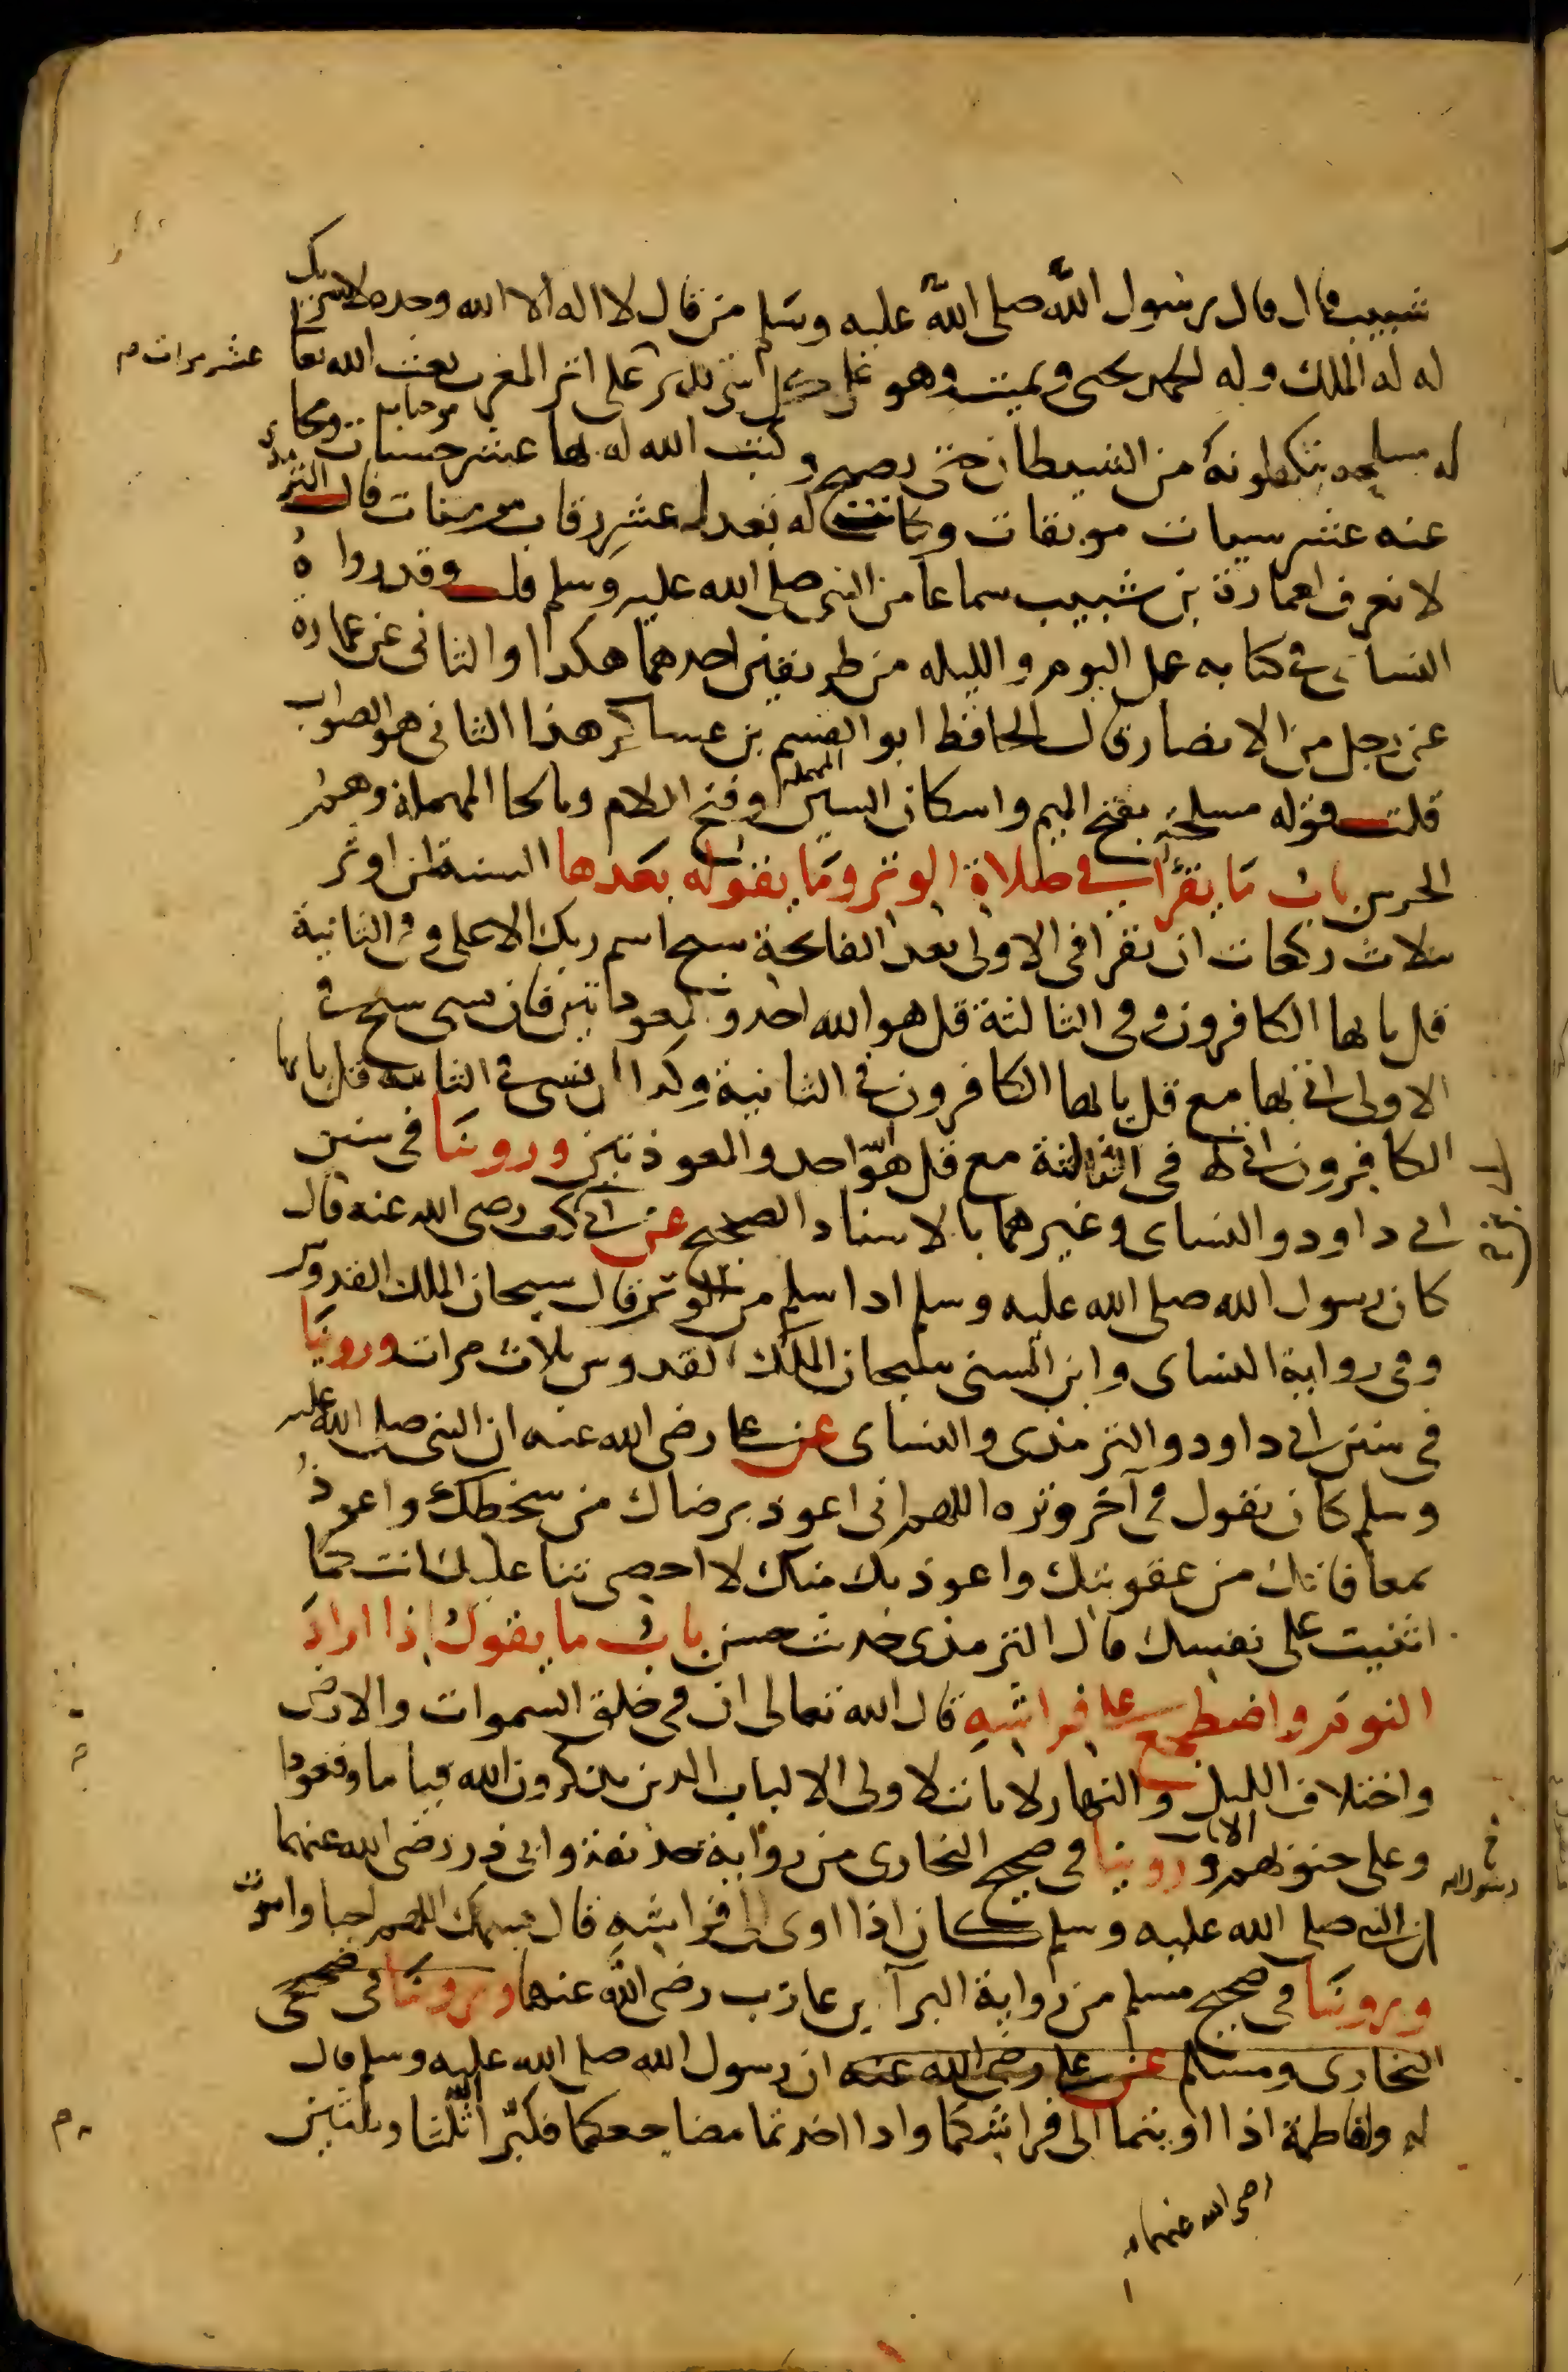 شبيب قال قال رسول الله صلى الله عليه وسلم من قال لا اله الا الله وحده لا شريك
له له الملك وله الحمد يحيى ويميت وهو على كل شى قدير على اثر المغرب بعث الله تعا
عشر مرات م
له مسلحه يتكلونه من الشيطان حتى يصبح وكتب الله له بها عشر حسنات موجبات ومحا
عنه عشر سيات موبقات وكانت له بعدل عشر رقاب مومنات قال الترمذى
لا نعرف لعمارة بن شبيب سماعا من النبى صلى الله عليه وسلم قلت وقد رواه
النساى فى كتابه عمل اليوم والليله من طريقين احدهما هكذا والثانى عن عمارة
عن رجل من الانصار قال الحافظ ابو القسم بن عساكر هذا الثانى هو الصواب
قلت قوله مسلحة بفتح الميم واسكان السين المهملة وفتح اللام وبالحا المهملة وهم
الحرس باب ما يقرأ فى صلاة الوتر وما يقوله بعدها السنة لمن اوتر
بثلاث ركعات ان يقرا فى الاولى بعد الفاتحة سبح اسم ربك الاعلى وفى الثانية
قل يا ايها الكافرون وفى الثالثة قل هو الله احد والمعوذتين فان نسى سبح فى
الاولى اتى بها مع قل يا ايها الكافرون فى الثانية وكذا ان نسى فى الثانية قل يا ايها
الكافرون اتى بها فى الثالثة مع قل هو الله احد والمعوذتين وروينا فى سنن
ابى داود والنساى وغيرهما بالاسناد الصحيح عن ابى كعب رضى الله عنه قال
كان رسول الله صلى الله عليه وسلم اذا سلم من الوتر قال سبحان الملك القدوس
وفى رواية النساى وابن السنى سبحان الملك القدوس ثلاث مرات وروينا
فى سنن ابى داود والترمذى والنساى عن على رضى الله عنه ان النبى صلى الله عليه
وسلم كان يقول فى آخر وتره اللهم انى اعوذ برضاك من سخطك واعوذ
بمعافاتك من عقوبتك واعوذ بك منك لا احصى ثنا عليك انت كما
اثنيت على نفسك قال الترمذى حديث حسن باب ما يقول اذا اراد
النوم واضطجع على فراشه قال الله تعالى ان فى خلق السموات والارض
واختلاف الليل والنهار لايات لاولى الالباب الذين يذكرون الله قياما وقعودا
وعلى جنوبهم الايات وروينا فى صحيح البخارى من رواية حذيفة وابى ذر رضى الله عنهما
خ
رسول الله
ان النبى صلى الله عليه وسلم كان اذا اوى الى فراشه قال باسمك اللهم احيا واموت
وروينا فى صحيح مسلم من رواية البرآ بن عازب رضى الله عنهما وروينا فى صحيحى
البخارى ومسلم عن على رضى الله عنه ان رسول الله صلى الله عليه وسلم قال
له ولفاطمة اذا اويتما الى فراشكما واذا اخذتما مضاجعكما فكبرا الله ثلثا وثلثين
رضى الله عنهما